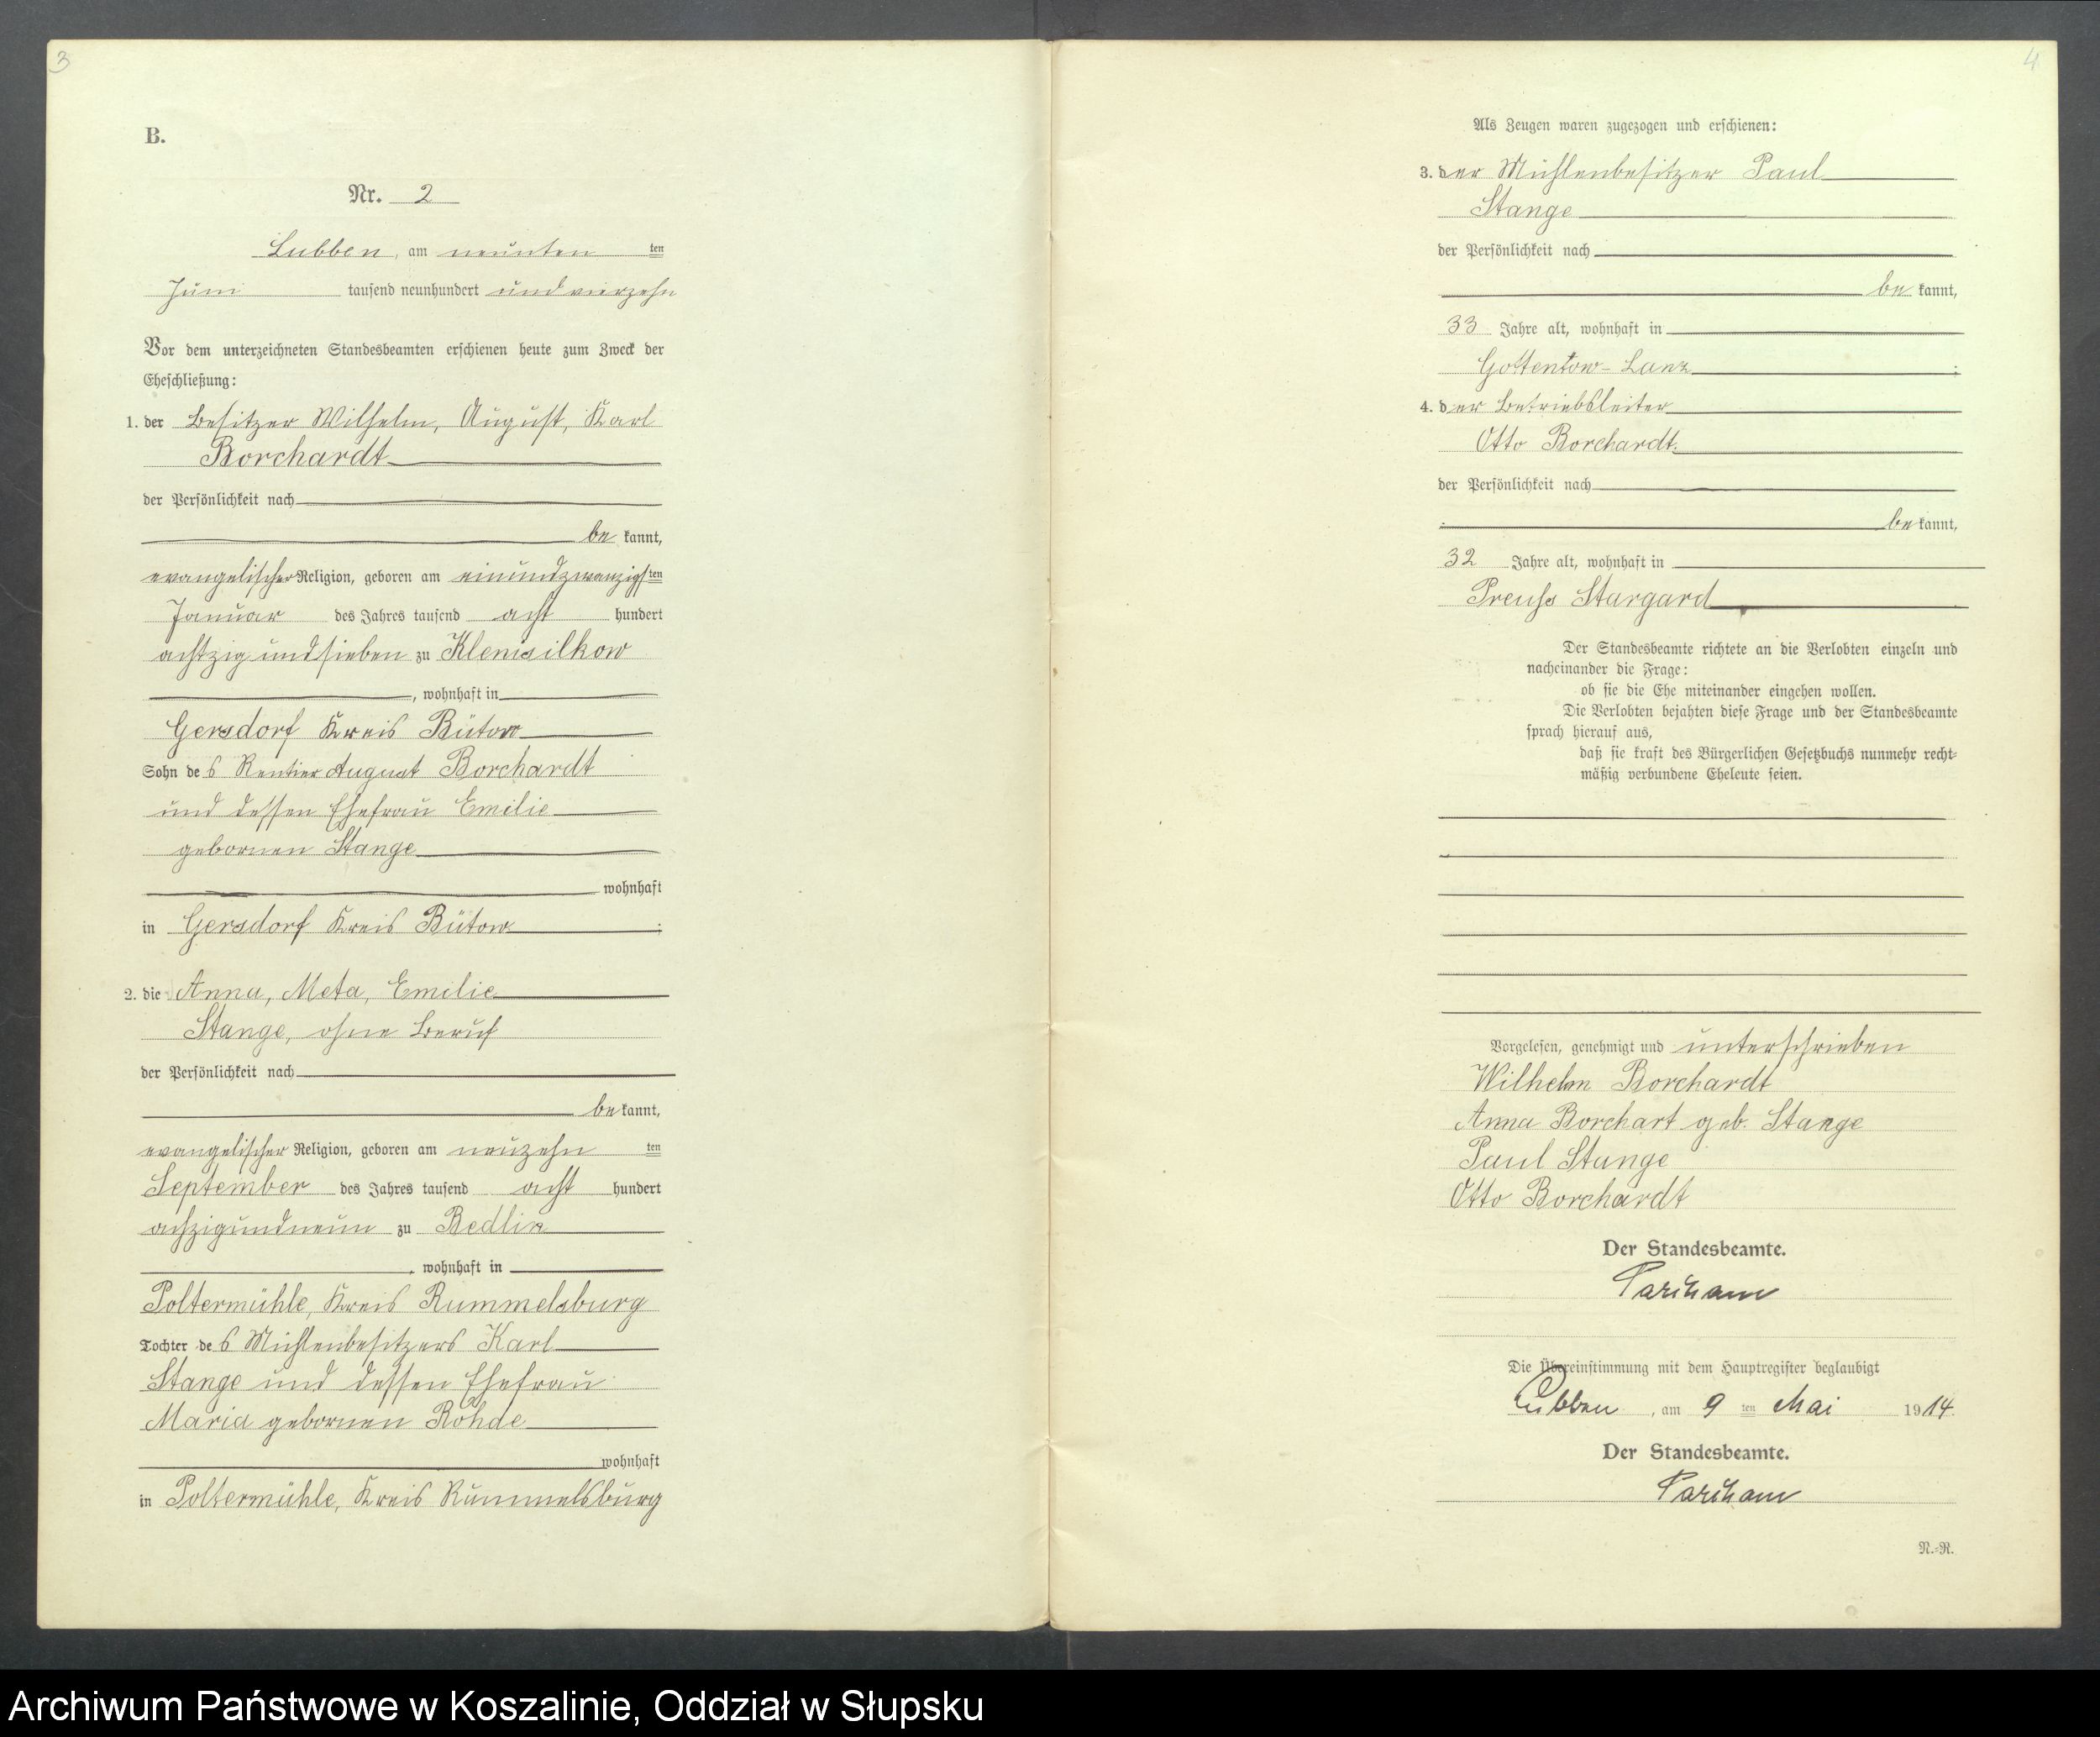 3
B.
Nr. 2
Lubben, am neunten ten
Juni tausend neunhundert und vierzehn
Vor dem unterzeichneten Standesbeamten erschienen heute zum Zweck der
Eheschließung:
1. der Besitzer Wilhelm, August, Karl
Borchardt
der Persönlichkeit nach
be kannt,
evangelischer Religion, geboren am einundzwanzigsten
Januar des Jahres tausend acht hundert
achtzig und sieben zu
, wohnhaft in
Gersdorf Kreis Bütow
Sohn des Rentier August Borchardt
und dessen Ehefrau Emilie
gebornen Stange
wohnhaft
in Gersdorf Kreis Bütow ;
2. die Anna, Meta, Emilie
Stange, ohne Beruf
der Persönlichkeit nach
be kannt,
evangelischer Religion, geboren am neuzehn ten
September des Jahres tausend acht hundert
achzigundneun zu Bedlin
, wohnhaft in
Poltermühle, Kreis Rummelsburg
Tochter des Mühlenbesitzers Karl
Stange und dessen Ehefrau
Maria gebornen Rohde
wohnhaft
in Poltermühle, Kreis Rummelsburg
4
Als Zeugen waren zugezogen und erschienen:
3. der Mühlenbesitzer Paul
Stange
der Persönlichkeit nach
be kannt,
33 Jahre alt, wohnhaft in
Gottentow-Lanz ;
4. der Betriebsleiter
Otto Borchardt
der Persönlichkeit nach
be kannt,
32 Jahre alt, wohnhaft in
Preuss Stargard
Der Standesbeamte richtete an die Verlobten einzeln und
nacheinander die Frage:
ob sie die Ehe miteinander eingehen wollen.
Die Verlobten bejahten diese Frage und der Standesbeamte
sprach hierauf aus,
daß sie kraft des Bürgerlichen Gesetzbuchs nunmehr recht-
mäßig verbundene Eheleute seien.
Vorgelesen, genehmigt und unterschrieben
Wilhelm Borchardt
Anna Borchart geb. Stange
Paul Stange
Otto Borchardt
Der Standesbeamte.
Die Übereinstimmung mit dem Hauptregister beglaubigt
Lubben, am 9 ten Mai 1914.
Der Standesbeamte.
N.-R.
Archiwum Państwowe w Koszalinie, Oddział w Słupsku